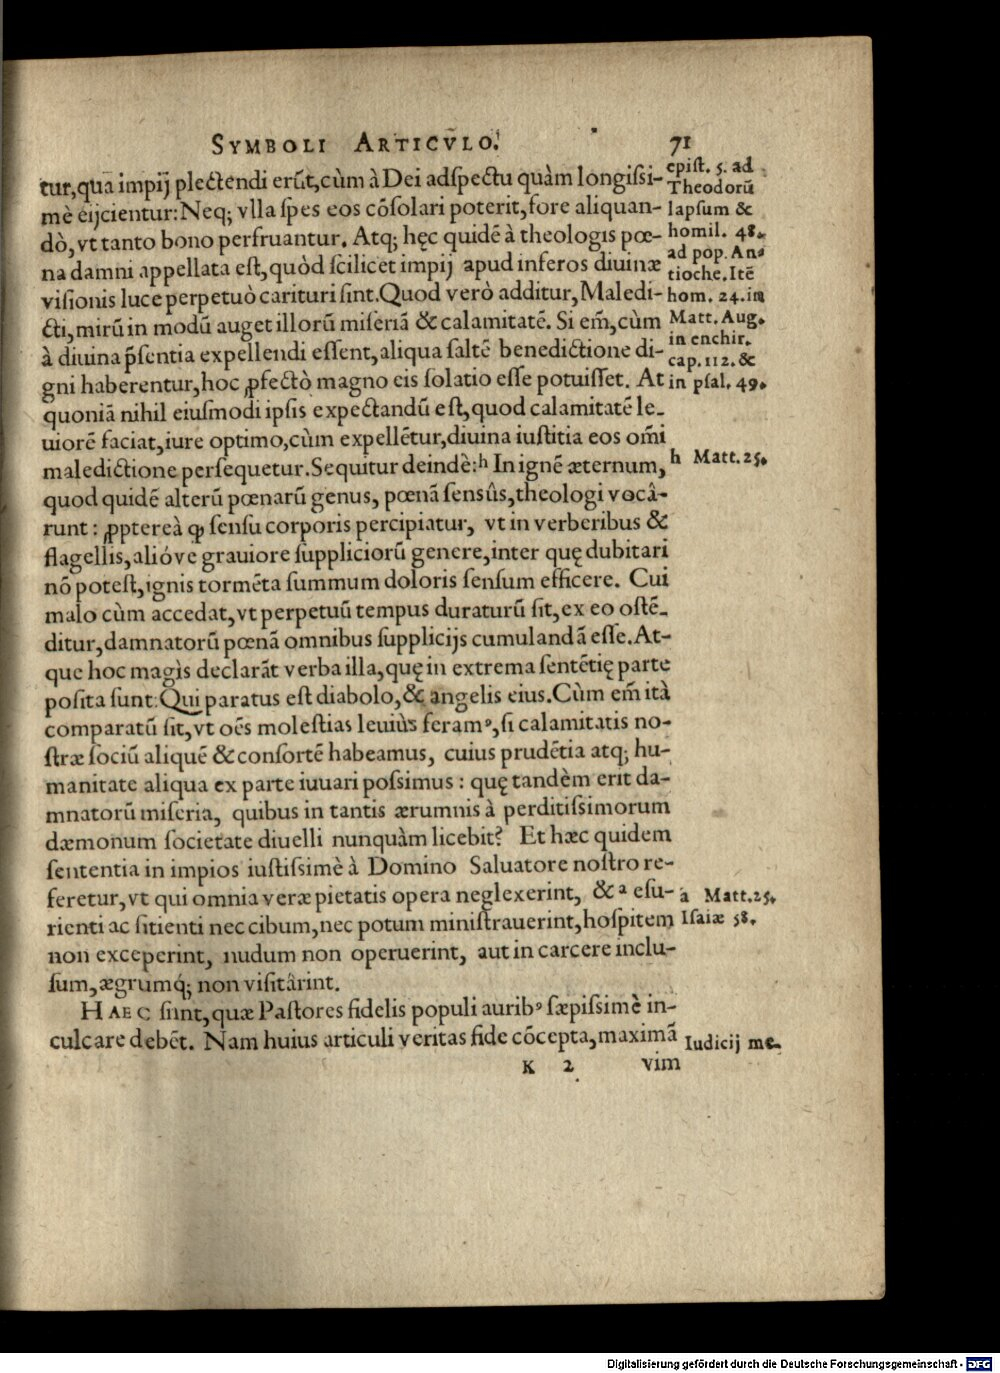 SYMBOLI ARTICVLO. 71
tur, quā impij plectendi erūt, cùm à Dei adſpectu quàm longiſsi-
mè eijcientur: Neq; vlla ſpes eos cōſolari poterit, fore aliquan-
dò, vt tanto bono perfruantur. Atq; hęc quidē à theologis pœ-
na damni appellata eſt, quòd ſcilicet impij apud inferos diuinæ
viſionis luce perpetuò carituri ſint. Quod verò additur, Maledi-
cti, mirū in modū auget illorū miſeriā & calamitatē. Si em̄, cùm
à diuina p̄ſentia expellendi eſſent, aliqua ſaltē benedictione di-
gni haberentur, hoc ꝓfectò magno eis ſolatio eſſe potuiſſet. At
quoniā nihil eiuſmodi ipſis expectandū eſt, quod calamitatē le-
uiorē faciat, iure optimo, cùm expellētur, diuina iuſtitia eos om̄i
maledictione perſequetur. Sequitur deindè: ʰ In ignē æternum,
quod quidē alterū pœnarū genus, pœnā ſensûs, theologi vocâ-
runt: ꝓptereà ꝙ ſenſu corporis percipiatur, vt in verberibus &
flagellis, alióve grauiore ſuppliciorū genere, inter quę dubitari
nō poteſt, ignis tormēta ſummum doloris ſenſum efficere. Cui
malo cùm accedat, vt perpetuū tempus duraturū ſit, ex eo oſtē-
ditur, damnatorū pœnā omnibus ſupplicijs cumulandā eſſe. At-
que hoc magìs declarāt verba illa, quę in extrema ſentētię parte
poſita ſunt: Qui paratus eſt diabolo, & angelis eius. Cùm em̄ ità
comparatū ſit, vt oēs moleſtias leuiùs feramꝰ, ſi calamitatis no-
ſtræ ſociū aliquē & conſortē habeamus, cuius prudētia atq; hu-
manitate aliqua ex parte iuuari poſsimus: quę tandèm erit da-
mnatorū miſeria, quibus in tantis ærumnis à perditiſsimorum
dæmonum ſocietate diuelli nunquàm licebit? Et hæc quidem
ſententia in impios iuſtiſsimè à Domino Saluatore noſtro re-
feretur, vt qui omnia veræ pietatis opera neglexerint, & ᵃ eſu-
rienti ac ſitienti nec cibum, nec potum miniſtrauerint, hoſpitem
non exceperint, nudum non operuerint, aut in carcere inclu-
ſum, ægrumq́; non viſitârint.
HAEC ſunt, quæ Paſtores fidelis populi auribꝰ ſæpiſsimè in-
culcare debēt. Nam huius articuli veritas fide cōcepta, maximā
K 2 vim
epiſt. 5. ad
Theodorū
lapſum &
homil. 48.
ad pop. An-
tioche. Itē
hom. 24. in
Matt. Aug.
in enchir.
cap. 112. &
in pſal. 49.
h Matt. 25.
a Matt. 25.
Iſaiæ 58.
Iudicij me-
Digitalisierung gefördert durch die Deutsche Forschungsgemeinschaft - DFG